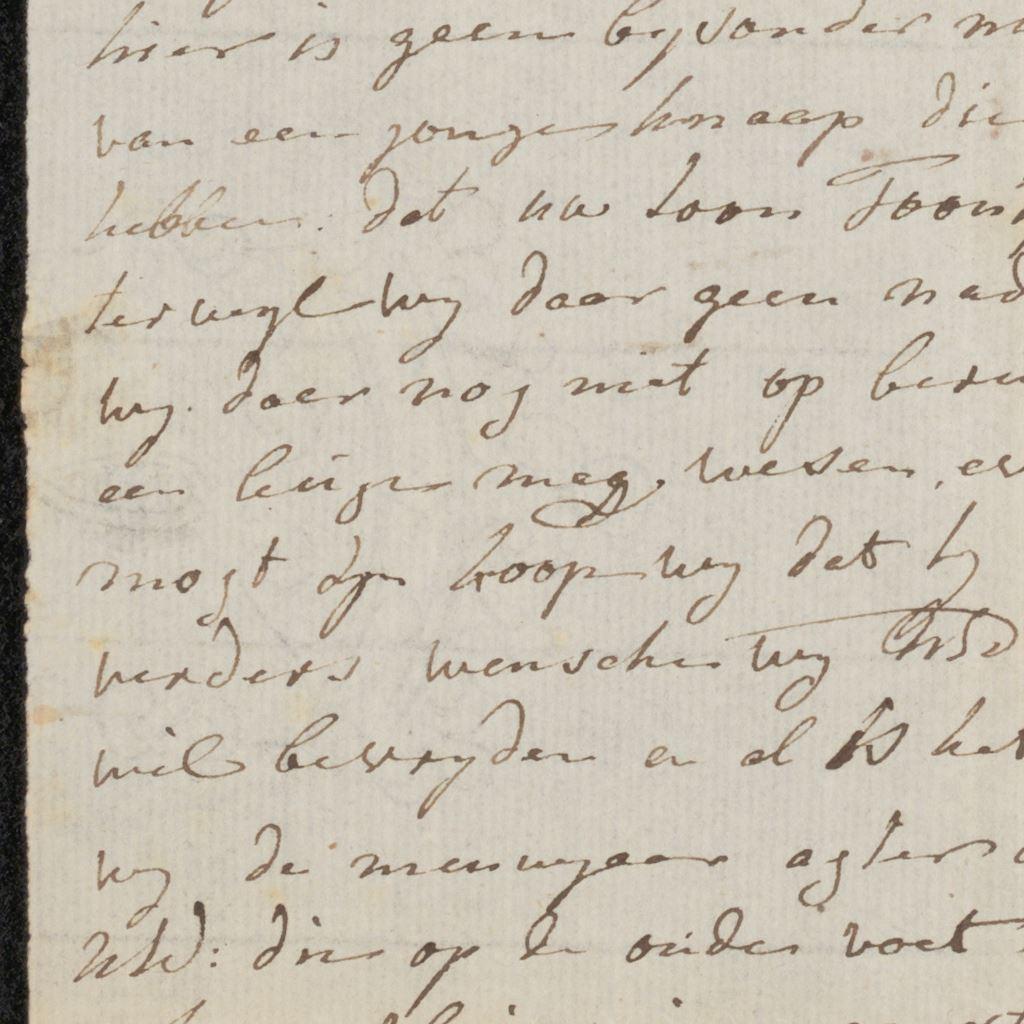 hier is geen byvonder
van een jonge knaap die
hebben: dat uw soon Toon
terwyl wy daar geen
wy daar nog niet op
een leúge mag wesen, en
mogt zyn hoop wy dat hy
verders wensche wy
wil bevryden en al is het
wy de nieuwjaar agter
UW: die op de oúde voet